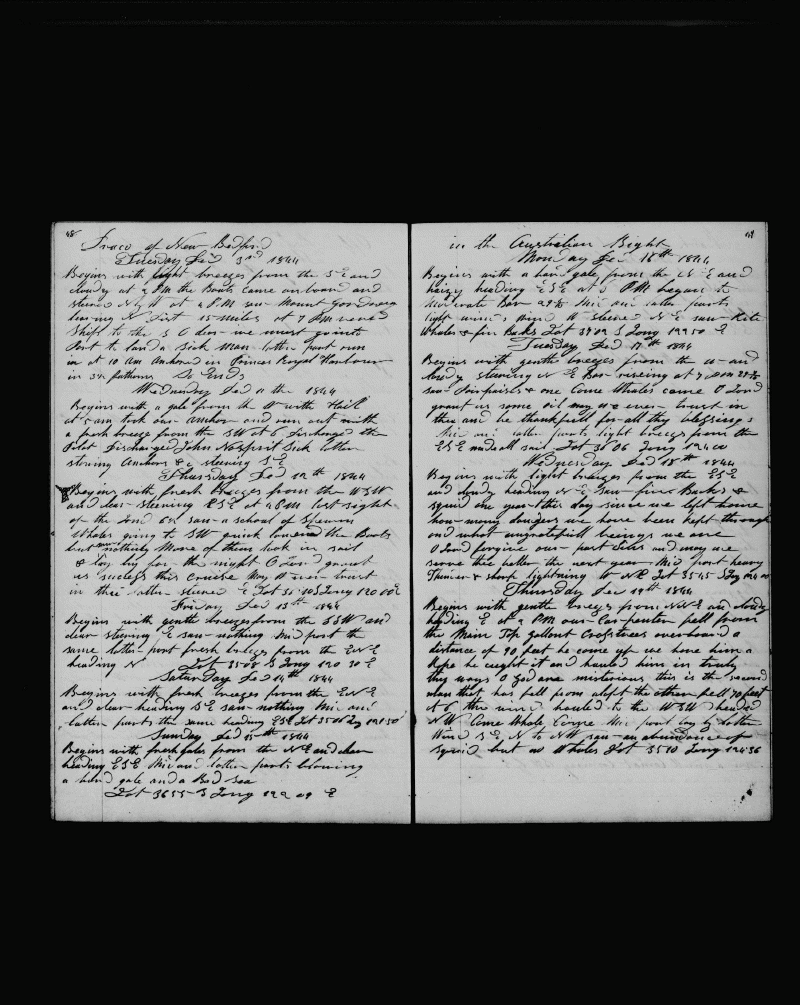 48
Draco of New Bedford
Tuesday Dec 3rd 1844
Begins with light breezes from the S E and
cloudy at 2 PM the Boats came on board and
steered N by W at 4 P.M saw Mount Gordner
bearing N Dist 15 miles at 7 PM wore
Ship to the S O dear we must
Port to land a Sick Man latter part run
in at 10 Am Anchored in Princes Royal Harbour
in 3½ fathoms So Ends
Wednesday Dec 11 the 1844
Begins with a gale from the W with Hail
at am took our Anchor and run out with
a fresh breeze from the SW at 6 Discharged the
Pilot Discharged John Sick latter
stowing Anchors & c steering S E
Thursday Dec 12th 1844
Begins with fresh breezes from the WSW
and clear steering ESE at 4 PM lost sight
of the land saw a school of Sperm
Whales going to SW quick lowered the Boats
but saw nothing More of them took in sail
& lay by for the night O Lord grant
us success this cruise May I ever trust
in thee latter steered E Lat 35 10 S Long 120 00 E
Friday Dec 13th 1844
Begins with gentle breezes from the SSW and
clear steering E saw nothing Mid part the
same latter part fresh breezes from the ENE
heading N Lat 35 08 S Long 120 30 E
Saturday Dec 14th 1844
Begins with fresh breezes from the ENE
and clear heading SE saw nothing Mid and
latter parts the same heading ESE Lat 35 06 Lg 121 50
Sunday Dec 15th 1844
Begins with fresh gales from the N E and clear
heading ESE Mid and latter parts blowing
a hard gale and a Bad Sea
Lat 36 55 S Long 122 09 E
49
in the Australian Bight
Monday Dec 16th 1844
Begins with a hard gale from the N E and
hazy heading ESE at 5 PM began to
moderate Bar 29½ Mid and latter parts
light winds Wind W steered N E saw Kite
Whales & fin Backs Lat 37 02 S Long 122 50 E
Tuesday Dec 17th 1844
Begins with gentle breezes from the W and
cloudy steering N E Bar riseing at 7 PM
saw Porpoises & one Come Whales came O Lord
grant us some oil may we ever trust in
thee and be thankfull for all thy blessings
Mid and latter parts light breezes from the
ESE made all sail Lat 36 06 Long 124 00
Wednesday Dec 18th 1844
Begins with light breezes from the ESE
and cloudy heading N E Saw fin Backs &
squid one year this day since we left home
how many dangers we have been kept through
and what ungratefull beings we are
O Lord forgive our past Sins and may we
serve thee better the next year Mid part heavy
Thunder & sharp lightning to NE Lat 35 45 S Log 124 00
Thursday Dec 19th 1844
Begins with gentle breezes from NNE and cloudy
heading E at 2 PM our Carpenter fell from
the Main Top gallant Crosstrees overboard a
distance of 90 feet he come up we hove him a
Rope he caught it and hauled him in truly
thy ways O God are misterious this is the second
man that has fell from aloft the other fell 70 feet
At 6 the wind hauled to the WSW headed
NW Come Whale Come Mid part lay by latter
Wind S E, N to NW saw an abundance of
squid but no Whales Lat 35 10 Long 124 36